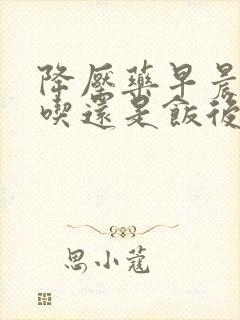 降壓藥早晨
喫還是飯後
思小蔻